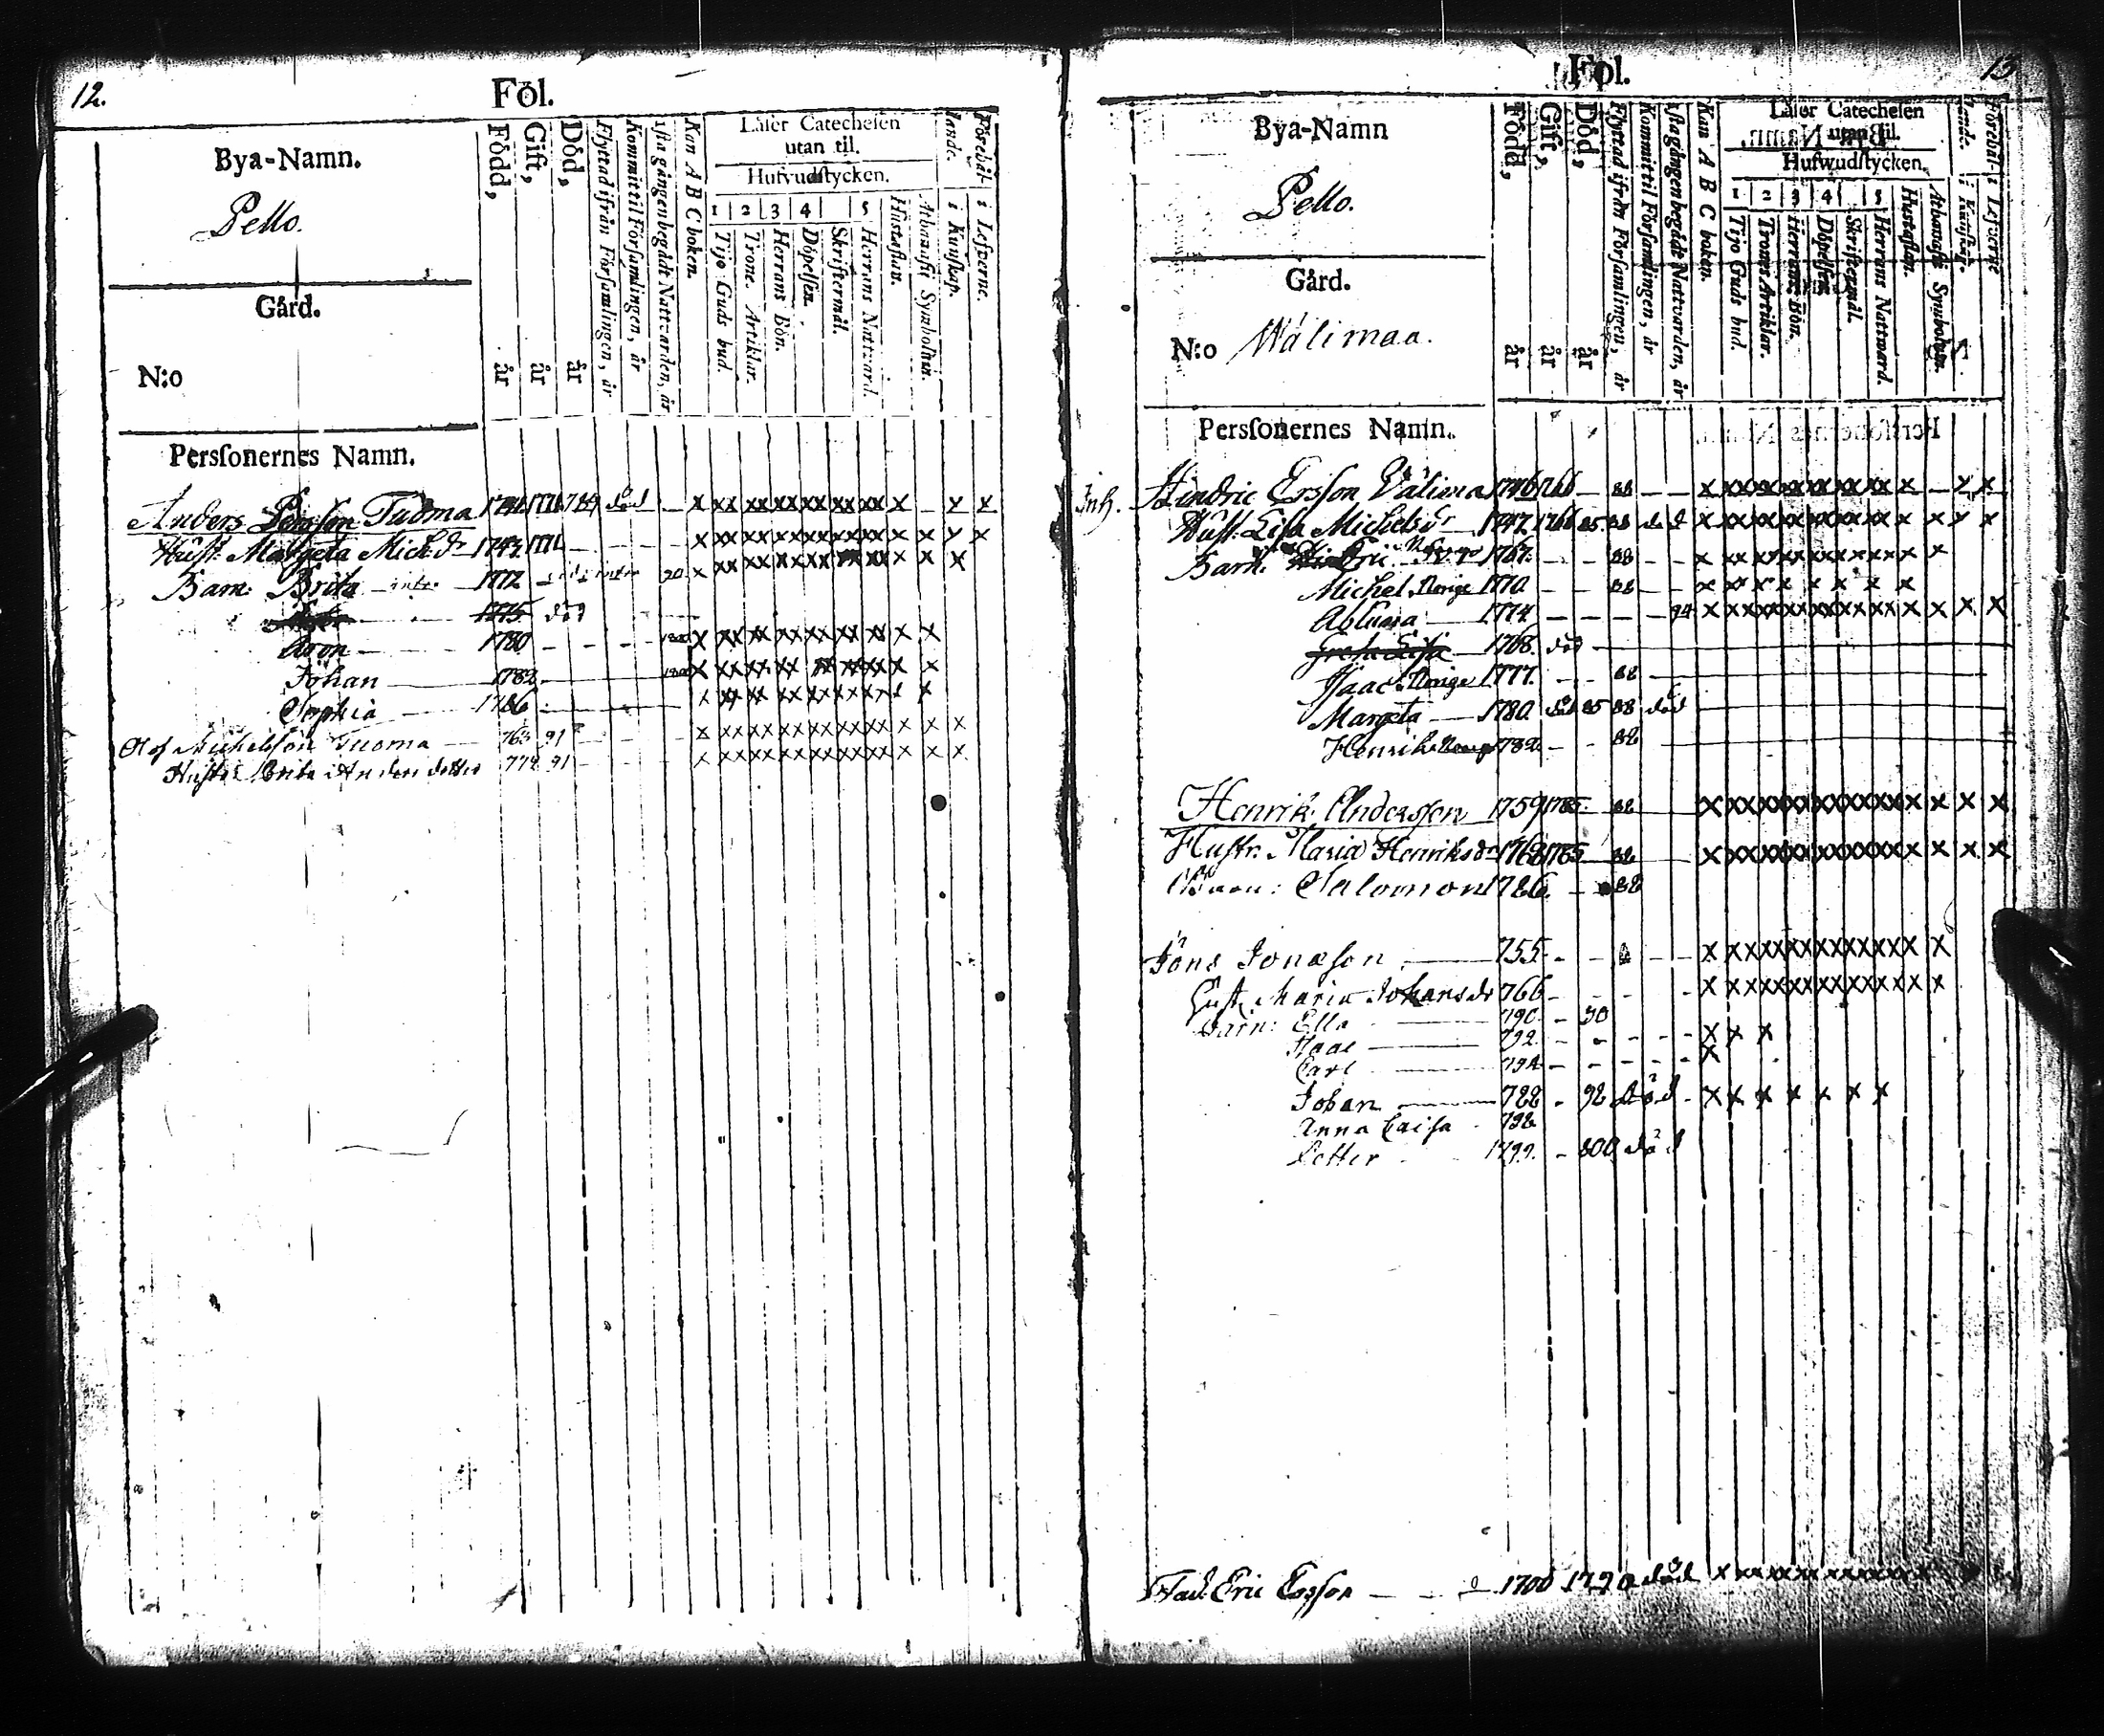 12.
Fol.
Bya-Namn.
Pello.
Gård.
N:o
Persſonernes Namn.
Född, år
Gift, år
Död, år
Flyttad ifrån Församlingen, år
Kommit til Församlingen, år
1sta gången begådt Nattvarden, år
Kan A B C boken.
Läser Catechesen utan til.
Hufvudſtycken.
1 2 3 4 5
Tijo Guds bud.
Trone Artiklar.
Herrans Bön.
Döpelsen.
Skriftermål.
Herrans Nattvard.
Hustaflan.
Athanasii Symbolum.
i Kunskap.
i Lefverne.
Anders Tuoma 1784 död
Hust. Margeta Mich.dr 1743
Barn. Brita 1772
1775 död
Aron 1780
Johan 1782
Sophia 1786
Olof Michelsson Tuoma 763 91
Hustr. Brita Andersdotter 772 91
13
Fol.
Bya-Namn
Pello.
Gård.
N:o Wälimaa.
Persſonernes Namn.
Född, år
Gift, år
Död, år
Flyttad ifrån Församlingen, år
Kommit til Församlingen, år
1sta gången begådt Nattvarden, år
Kan A B C boken.
Läser Catechesen utan til.
Hufwudſtycken.
1 2 3 4 5
Tijo Guds bud.
Trones Artiklar.
Herrans Bön.
Döpelsen.
Skriftermål.
Herrans Nattward.
Hustaflan.
Athanasii Symbolum.
i Kunskap.
i Lefverne
Inh. Hindric Ersson Välima 1746 1766 88
Hust. Lisa Michelsdr 1747 1766 85 88 död
Barn. Norge 1767 88
Michel Norge 1770 88
1774 94
Greta Lisa 1768 död
Isaac Norge 1777 88
Margeta 1780 död 85 88 död
Henrik Norge 1782 88
Henrik Andersson 1759 1785 88
Hustr. Maria Henriksdr 1762 1785 88
Barn: Salomon 1786 88
Jöns Jonasson 755
Hust. Maria Johansdr 766
Barn: Ella 790 90
Isaac 792
Carl 794
Johan 788 92 död
Anna Caisa 798
Petter 1799 800 död
Fad. Eric Ersson 1700 1790 död